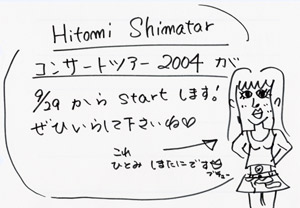 Hitomi Shimatar
コンサートツアー 2004 が
9/29 から start します!
ぜひいらして下さいね♡
これ
ひとみ しまたにです
ブチュー